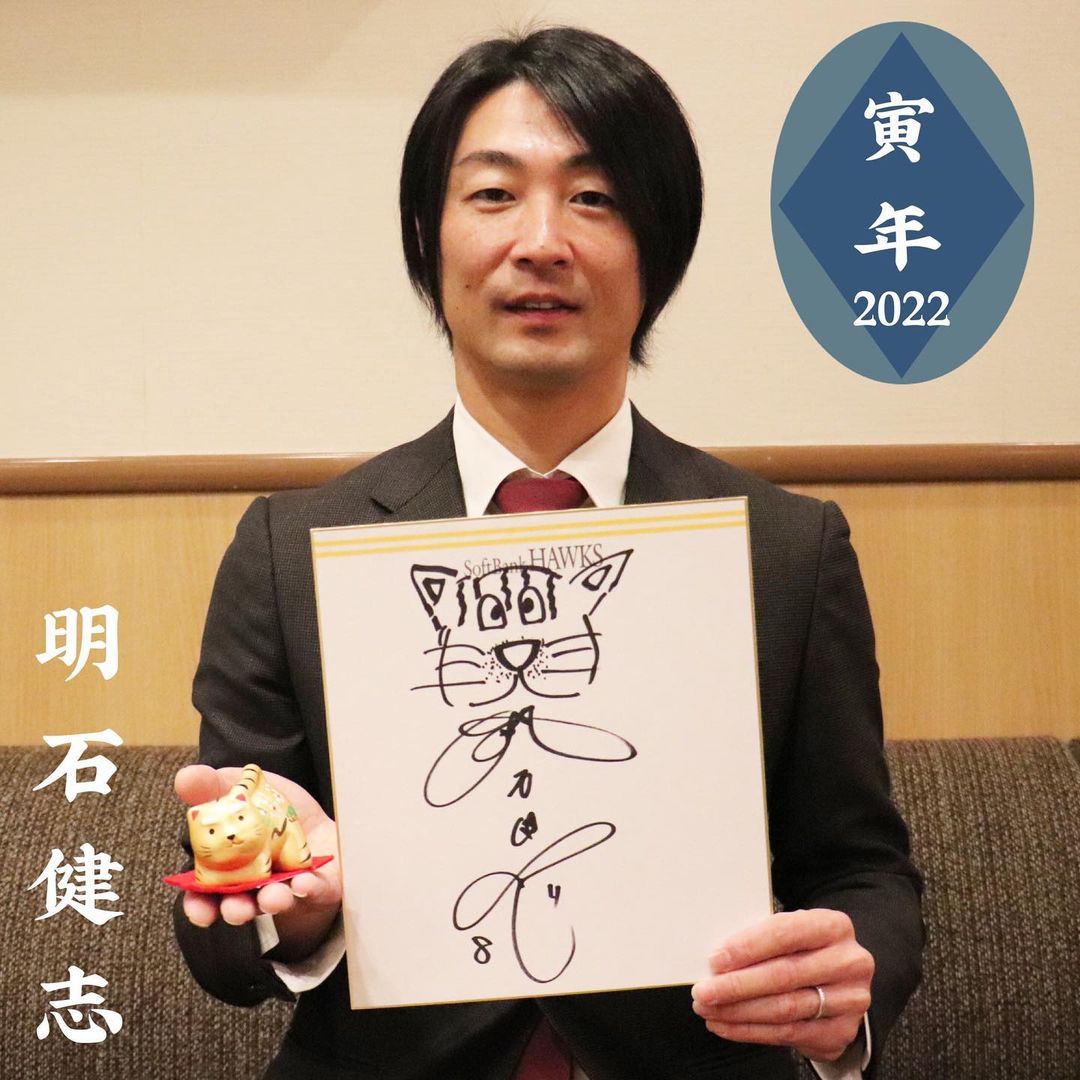 寅年
2022
明石健志
SoftBank HAWKS
8